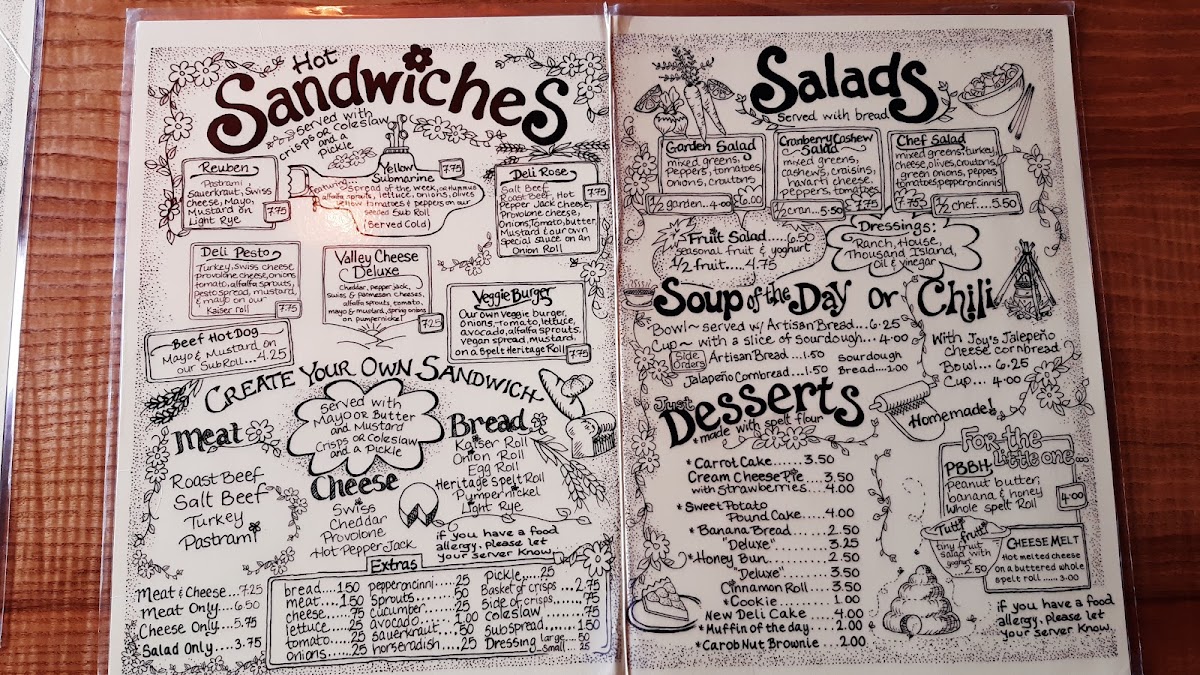 Hot
Sandwiches
served with
crisps or coleslaw
and
pickle
Reuben
Pastrami
Sauerkraut, Swiss
cheese, Mayo,
Mustard on
Light Rye
7.75
Yellow
Submarine
7.75
Featuring
spread of the week, or Hummus
alfalfa sprouts, lettuce, onions, olives
yellow tomatoes & peppers on our
seeded Sub Roll
(Served Cold)
Deli Rose
Salt Beef
Roast Beef, Hot
Pepper Jack Cheese,
Provolone cheese,
Onions, Tomato, butter,
Mustard & our own
special sauce on an
Onion Roll
7.75
Deli Pesto
Turkey, Swiss cheese
provolone cheese, onions
tomato, alfalfa sprouts,
pesto spread, mustard,
& mayo on our
Kaiser roll
7.75
Valley Cheese
Deluxe
Cheddar, pepper jack,
Swiss & parmesan cheeses,
alfalfa sprouts, tomato,
mayo & mustard, spring onions
on pumpernickel
7.25
Veggie Burger
Our own Veggie burger,
onions, tomato, lettuce,
avocado, alfalfa sprouts.
vegan spread, mustard,
on a Spelt Heritage Roll
7.75
Beef Hot Dog
Mayo & Mustard on
our Sub Roll...4.25
Create Your Own Sandwich
Served with
Mayo or Butter
and Mustard
Crisps or Coleslaw
and a Pickle
Meat
Roast Beef
Salt Beef
Turkey
Pastrami
Cheese
Swiss
Cheddar
Provolone
Hot Pepper Jack
Bread
Kaiser Roll
Onion Roll
Egg Roll
Heritage Spelt Roll
Pumpernickel
Light Rye
if you have a food
allergy, please let
your server Know.
Meat & Cheese...7.25
Meat Only...6.50
Cheese Only...5.75
Salad Only....3.75
Extras
bread....1.50
meat....1.50
cheese....75
lettuce....25
tomato....25
onions....25
pepperoncini....25
sprouts....50
cucumber....25
avocado....1.00
sauerkraut..50
horseradish....25
Pickle....25
Basket of crisps...2.75
Side of crisps....75
coleslaw....75
sub spread....1.50
Dressing large..50
small 25
Salads
served with bread
Garden Salad
mixed greens,
Peppers, tomatoes
onions, croutons
6.00
1/2 garden..4.00
Cranberry Cashew
Salad
mixed greens,
cashews, craisins,
havarti cheese,
Peppers, tomatoes
7.75
1/2 cran...5.50
Chef Salad
mixed greens, turkey,
cheese, olives, croutons,
green onions, peppers
tomatoes, pepperoncinnis
7.75
1/2 chef....5.50
Fruit Salad....6.50
seasonal fruit & yoghurt
1/2 fruit....4.75
Dressings:
Ranch, House,
Thousand Island,
Oil & vinegar
Soup of the Day or Chili
Bowl~ served w/ Artisan Bread...6.25
Cup~ with a slice of Sourdough...4.00
Side
Orders
Artisan Bread...1.50
Jalapeño Cornbread...1.50
Sourdough
Bread...1.00
With Joy's Jalepeño
cheese cornbread
Bowl...6.25
Cup...4.00
Just
Desserts
*made with spelt flour
Homemade!
*Carrot Cake......3.50
Cream Cheese Pie....3.50
with strawberries....4.00
*Sweet Potato
Pound Cake....4.00
*Banana Bread.....2.50
"Deluxe".......3.25
*Honey Bun.......2.50
"Deluxe".......3.50
Cinnamon Roll....3.50
*Cookie...........1.00
New Deli Cake....4.00
*Muffin of the day....2.00
*Carob Nut Brownie...2.00
For the
little one...
PBBH
Peanut butter,
banana & honey
Whole spelt Roll
4.00
Tutti
frutti
tiny fruit
salad with
yoghurt
2.50
Cheese Melt
Hot melted cheese
on a buttered whole
spelt roll.....3.00
if you have a food
allergy, please let
your server Know.